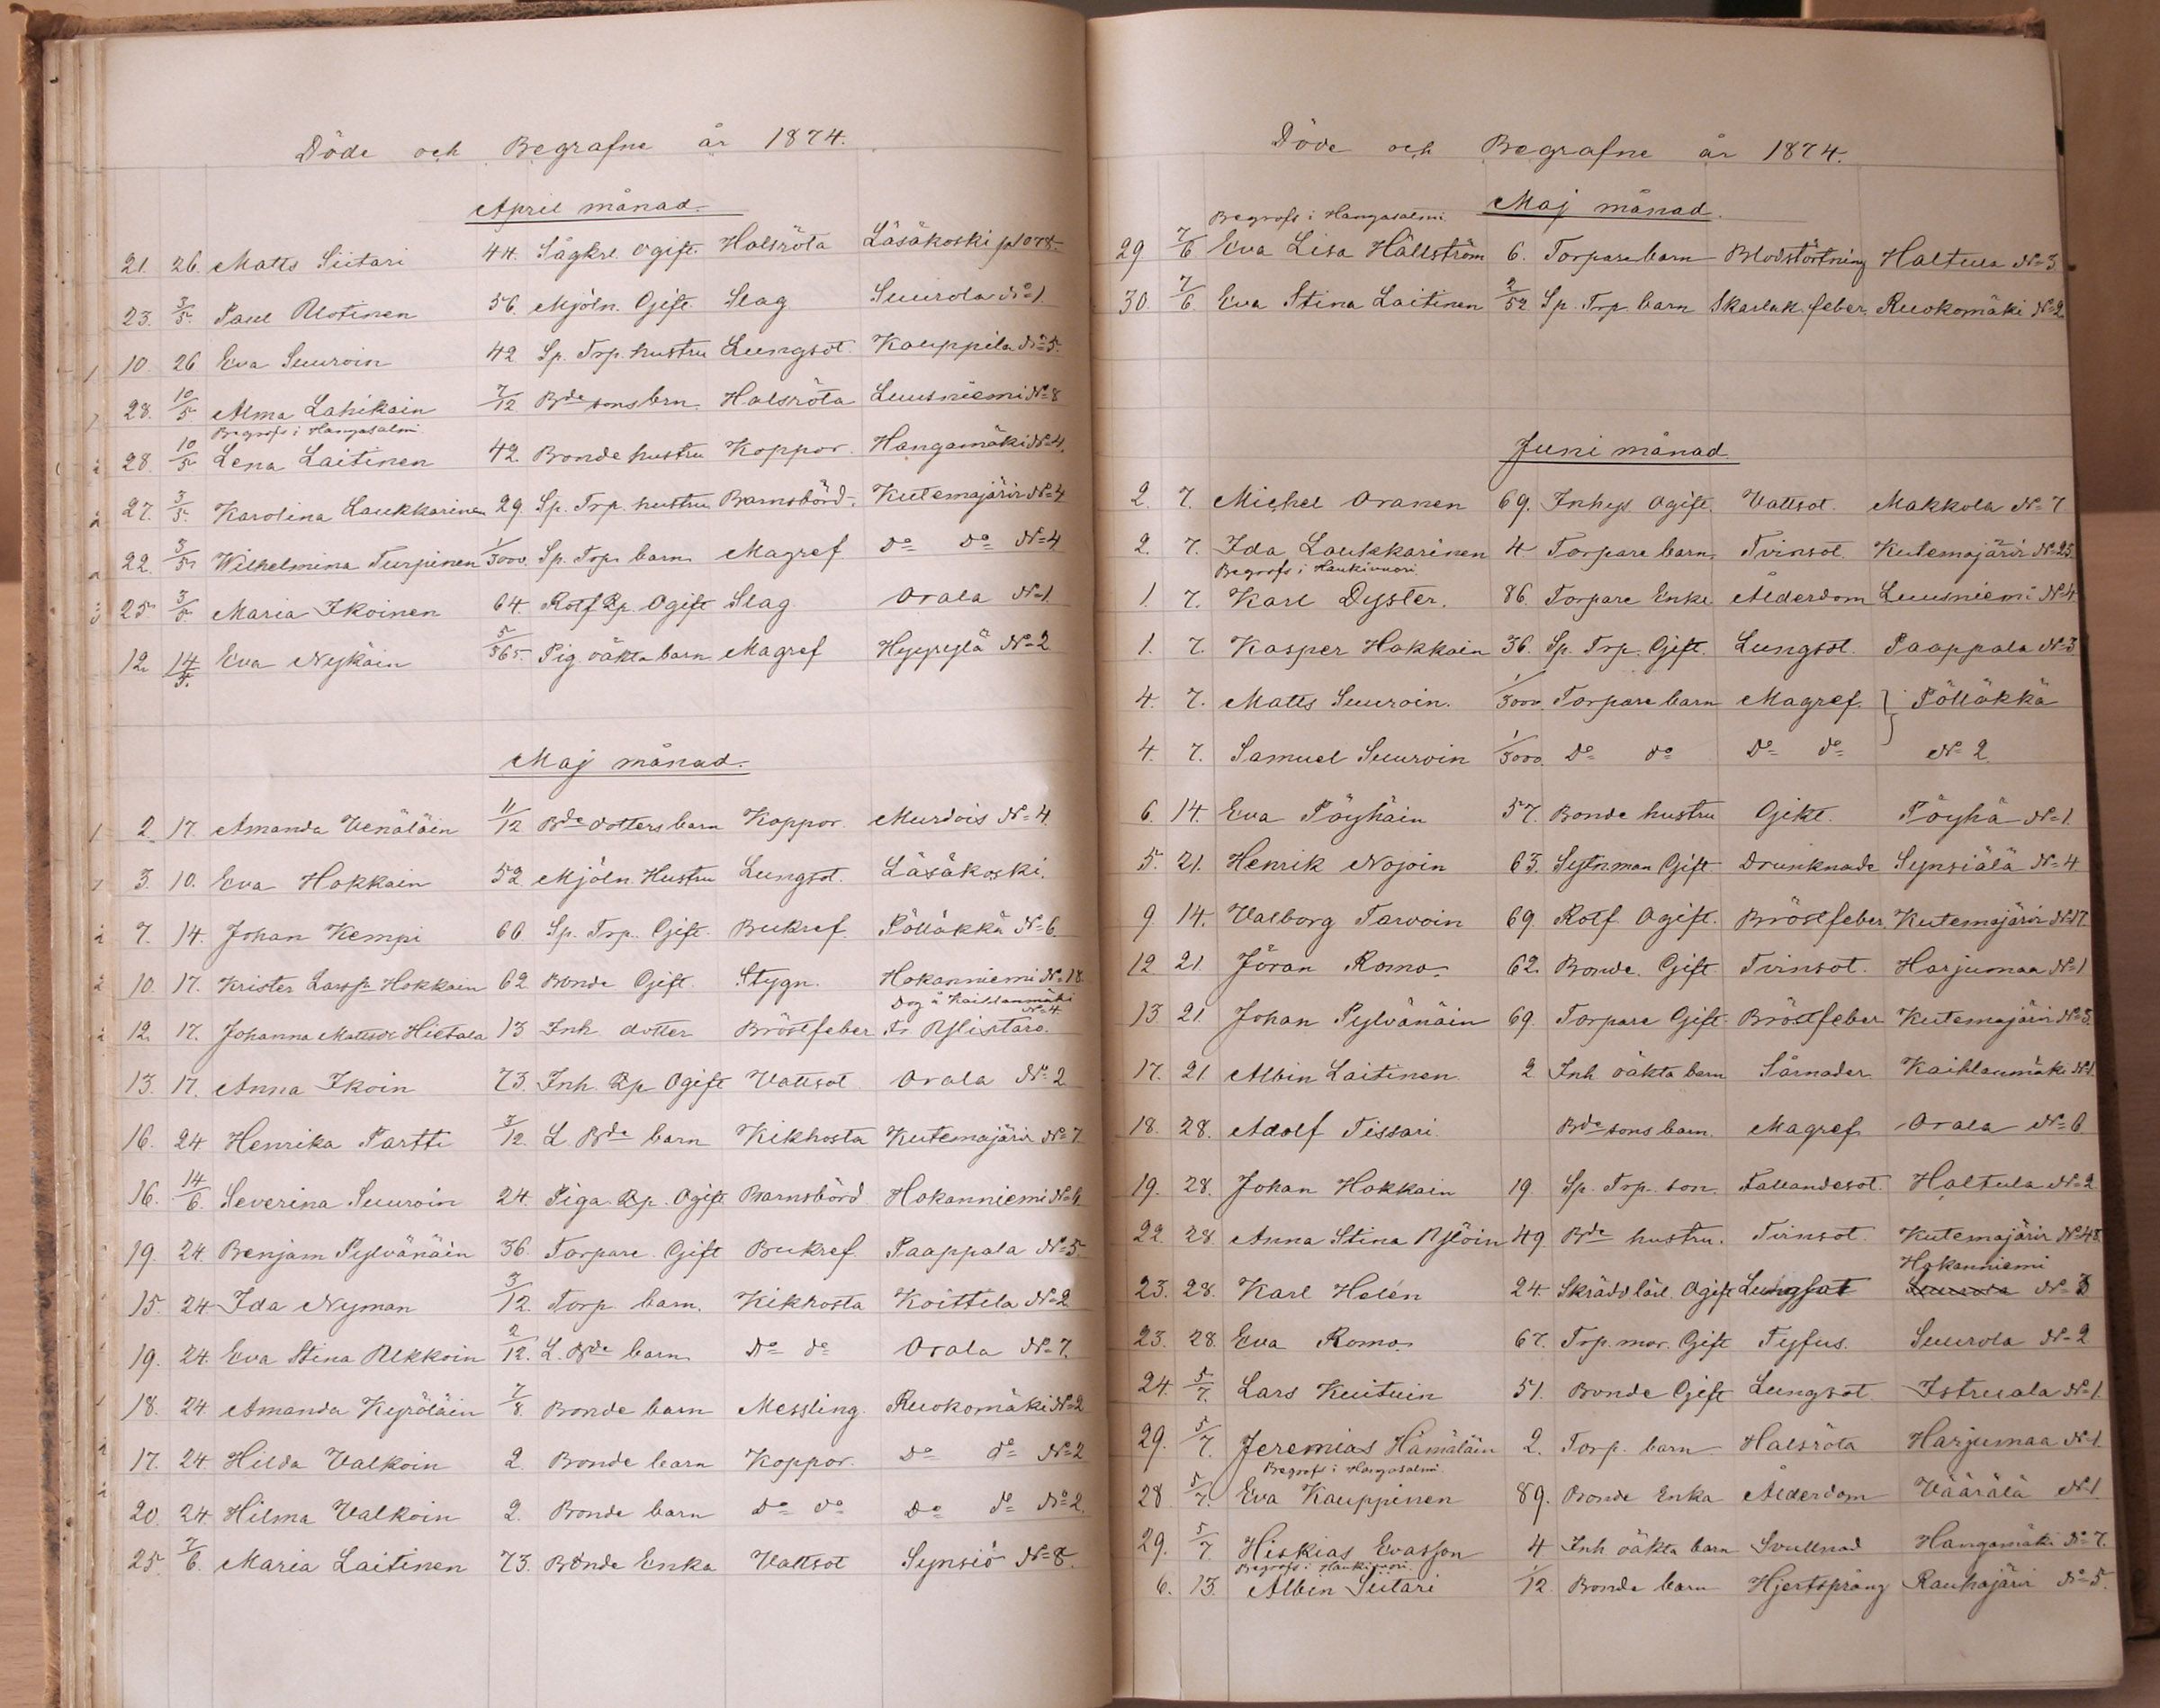 Döde och Begrafne år 1874.
April månad.
21. 26. Matts Siitari 44. Sågkrl. Ogift. Halsröta Läsäkoski
23. 3/5 Paul Ulotinen 56. Mjöln. Gift. Slag Suurola No 1.
10. 26 Eva Suuroin 42 Sp. Trp. hustru Lungsot. Kauppila No 5.
28. 10/5 Alma Lahikain 7/12 Bde sons brn. Halsröta Luusniemi No 8
Begrofs i Hangasalmi
28. 10/5 Lena Laitinen 42. Bonde hustru Koppor. Hangamäki No 4.
27. 3/5. Karolina Laukkarinen 29. Sp. Trp. hustru Barnsbörd. Kutemajärvi No 4
22. 3/5 Wilhelmina Turpinen Sp. Trp. barn Magref Do Do No 4
25 3/5 Maria Ikoinen 64. Rotf. Ogift Slag Orala No 1
12. 14/5. Eva Nykäin 5/365. Pig. oäkta barn Magref Hyyrylä No 2
Maj månad.
2. 17. Amanda Venäläin 11/12 Bde dotters barn Koppor Murdois No 4.
3. 10. Eva Hokkain 52 Mjöln. Hustru Lungsot. Läsäkoski.
7. 14. Johan Kempi 60 Sp. Trp. Gift. Bukref. Pölläkkä No 6.
10. 17. Krister Larsp. Hokkain 62 Bonde Gift. Stygn. Hokanniemi No 18
Dog å Kaihlanmäki No 4
12. 17. Johanna Mattsdr Hietala 13 Inh. dotter Bröstfeber Fr. Ylistaro.
13. 17. Anna Ikoin 73. Inh. Ogift Vattsot Orala No 2
16. 24 Henrika Partti 3/12. L. Bde barn Kikhosta Kutemajärvi No 7
16. 14/6. Severina Suuroin 24. Piga Ogift Barnsbörd Hokanniemi
19. 24. Benjam Pylvänäin 36. Torpare Gift Bukref. Paappala No 5.
15. 24 Ida Nyman 3/12. Torp. barn. Kikhosta Koittila No 2
19. 24. Eva Stina Ukkoin 2/12. L. Bde barn Do do Orala No 7.
18. 24. Amanda Kyröläin 7/8. Bonde barn Messling. Ruokomäki No 2
17. 24. Hilda Valkoin 2. Bonde barn Koppor. Do do No 2
20. 24 Hilma Valkoin 2. Bonde barn Do do Do do No 2.
25. 7/6. Maria Laitinen 73. Bonde Enka Vattsot Synsiö No 8.
Döde och Begrafne år 1874.
Maj månad.
Begrofs i Hangasalmi
29 7/6 Eva Lisa Hällström 6. Torpare barn Blodstörtning Haltula No 3
30. 7/6. Eva Stina Laitinen 2/52 Sp. Trp. barn Skarlak. feber. Ruokomäki No 2
Juni månad.
2. 7. Michel Oranen 69. Inhys. Ogift. Vattsot. Makkola No 7
2. 7. Ida Laukkarinen 4 Torpare barn. Tvinsot. Kutemajärvi No 25
Begrofs i Haukivuori.
1. 7. Karl Dyster. 86. Torpare Enkl. Ålderdom Luusniemi No 4
1. 7. Kasper Hokkain 36. Sp. Trp. Gift. Lungsot. Paappala No 3
4. 7. Matts Suuroin. Torpare barn Magref. } Pölläkkä
4. 7. Samuel Suuroin Do do Do do No 2
6. 14. Eva Pöyhäin 57. Bonde hustru Gikt. Pöyhä No 1.
5. 21. Henrik Nojoin 63. Sytnman Gift Drunknade Synsiälä No 4.
9. 14. Valborg Tarvoin 69. Rotf. Ogift. Bröstfeber. Kutemajärvi No 17.
12. 21. Jöran Romo. 62. Bonde. Gift. Tvinsot. Harjumaa No 1
13. 21. Johan Pylvänäin 69. Torpare Gift. Bröstfeber Kutemajärvi No 3.
17. 21. Albin Laitinen. 2 Inh. oäkta barn Sårnader. Kaihlanmäki No 1.
18. 28. Adolf Tissari. Bde sons barn. Magref Orala No 6
19. 28. Johan Hokkain 19 Sp. Trp. son. Fallandesot. Haltula No 2
22. 28. Anna Stina Ylöin 49. Bde hustru. Tvinsot. Kutemajärvi No 48
Hokanniemi
23. 28. Karl Helén 24. Ogift Lungsot Suurola No 3
23. 28. Eva Romo. 67. Trp. mor. Gift Tyfus. Suurola No 2
24. 5/7. Lars Kuituin 51. Bonde Gift Lungsot. Istruala No 1.
29. 5/7. Jeremias Hämäläin 2. Torp. barn Halsröta Harjumaa No 1
Begrofs i Hangasalmi
28 5/7. Eva Kauppinen 89. Bonde Enka Ålderdom Väärälä No 1
29. 5/7. Hiskias Evasson 4 Inh oäkta barn Svullnad Hangamäki No 7.
Begrofs i Haukivuori.
6. 13. Albin Siitari 1/12 Bonde barn Hjertsprång Rauhajärvi No 5.